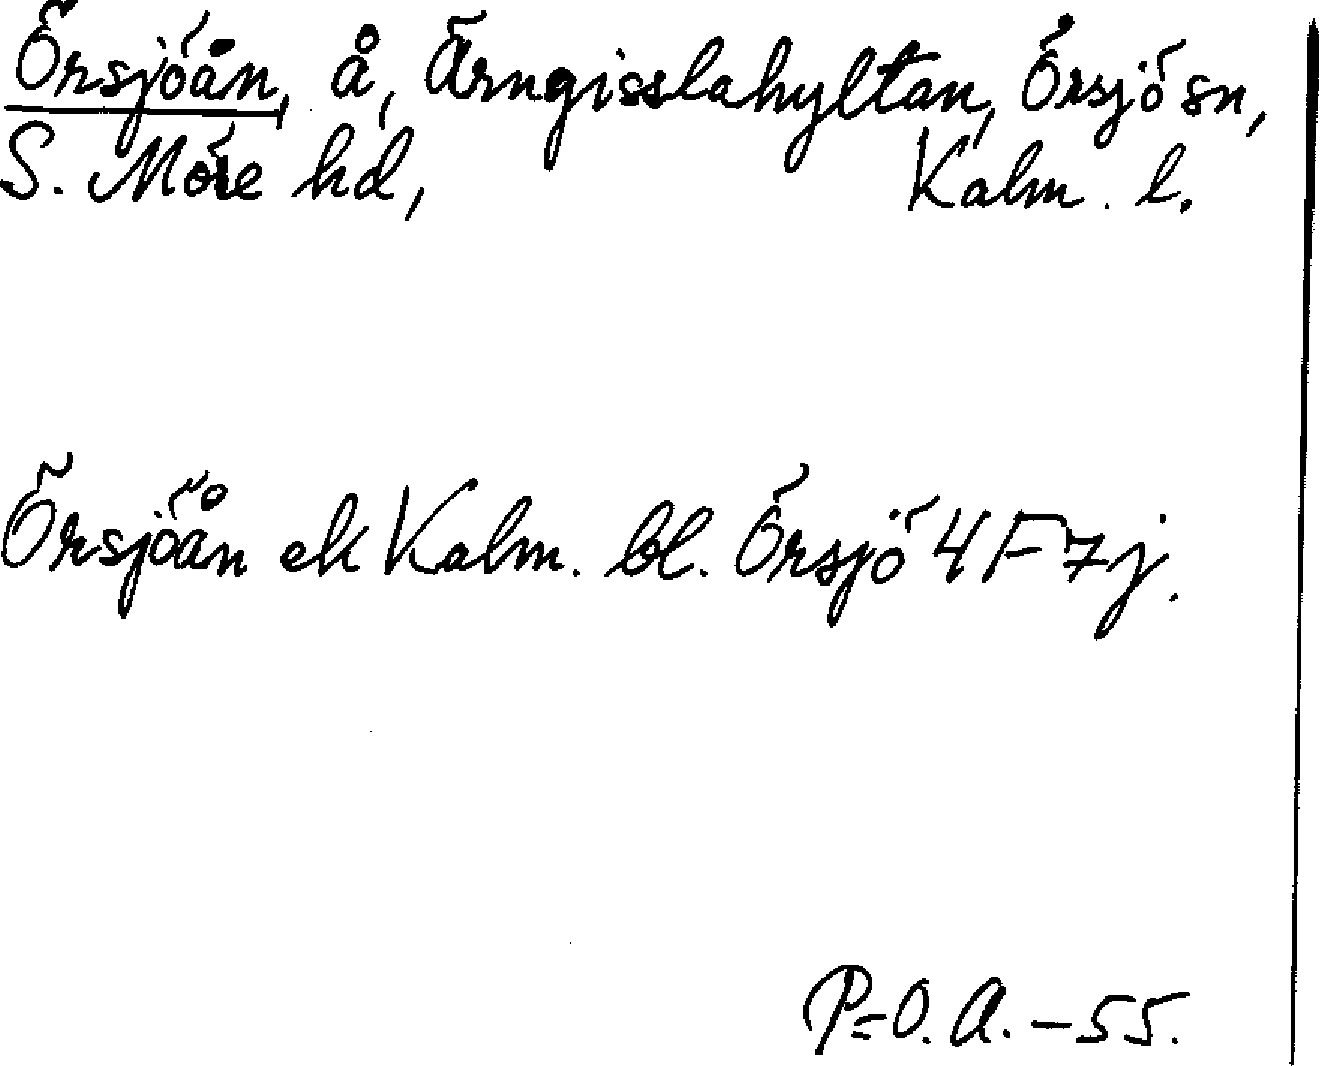 Örsjöån, å, Ärngisslahyltan, Örsjö sn,
S. Möre hd, Kalm. l.
Örsjöån ek Kalm. bl. Örsjö 4F7j.
P=O.A. – 55.